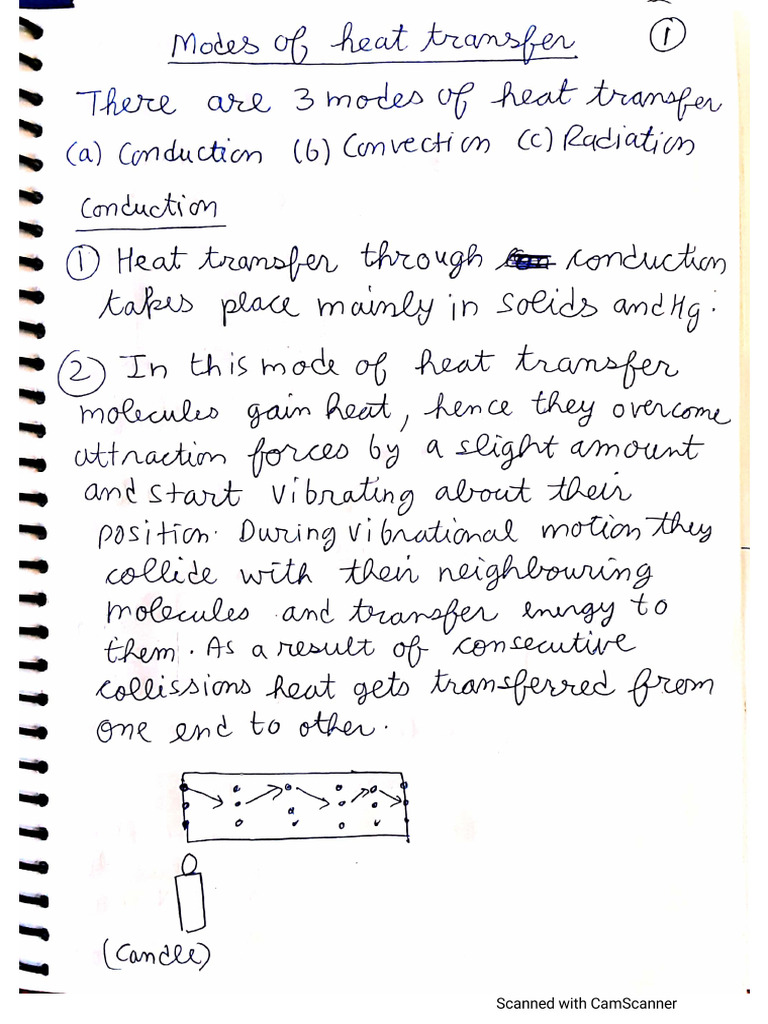 Modes of heat transfer
①
There are 3 modes of heat transfer
(a) Conduction (b) Convection (c) Radiation
Conduction
① Heat transfer through conduction
takes place mainly in solids and Hg.
② In this mode of heat transfer
molecules gain heat, hence they overcome
attraction forces by a slight amount
and start vibrating about their
position. During vibrational motion they
collide with their neighbouring
molecules and transfer energy to
them. As a result of consecutive
collissions heat gets transferred from
one end to other.
(Candle)
Scanned with CamScanner